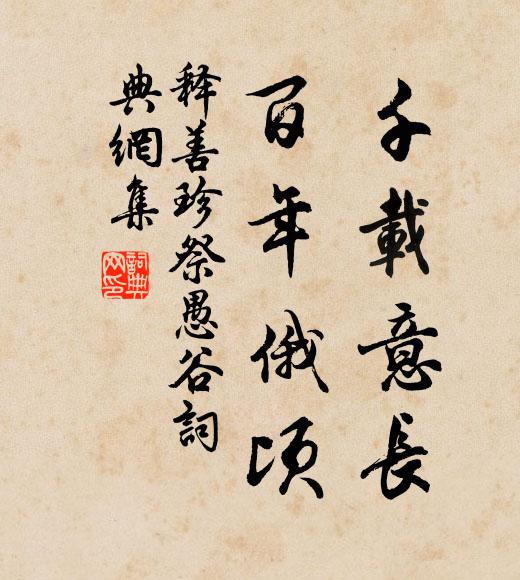 千載意長
百年俄頃
释善珍祭愚谷詞
典網集
詞典
网印